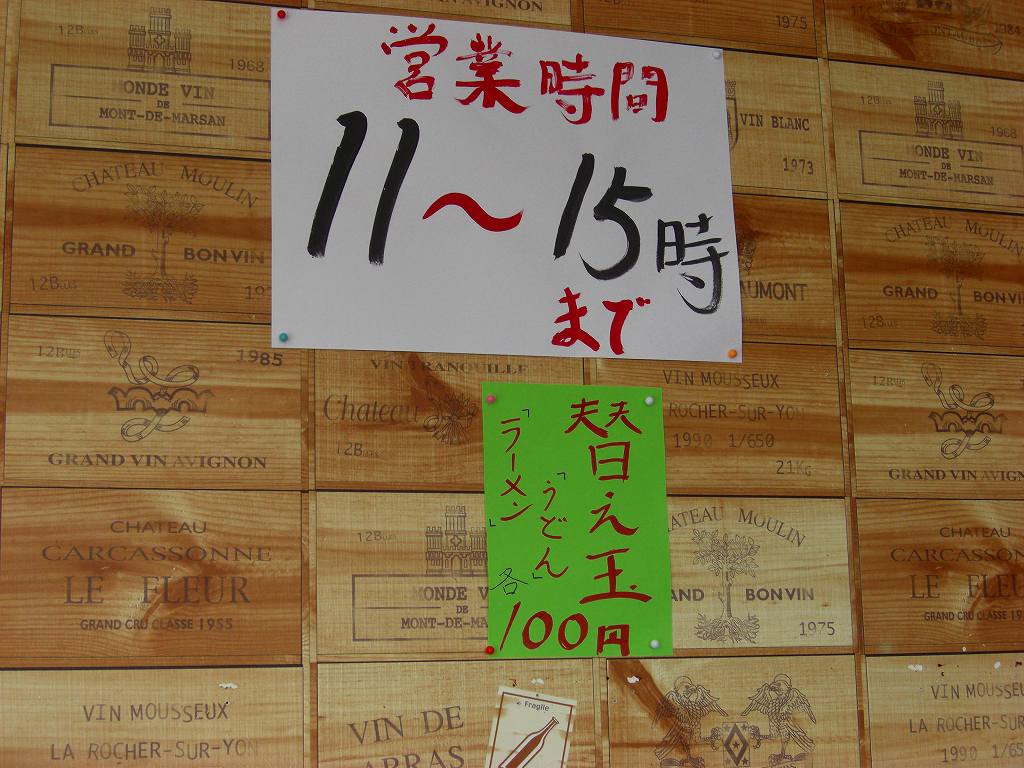 営業時間
11～15時
まで
替え玉
「うどん」
「ラーメン」
各
100円
AVIGNON
1975
12Bus
1968
MONDE VIN
DE
MONT-DE-MARSAN
VIN BLANC
1973
12Bus
1968
MONDE VIN
DE
MONT-DE-MARSAN
CHATEAU MOULIN
GRAND BONVIN
12Bus
AUMONT
CHATEAU MOULIN
GRAND BONVIN
12Bus
12Bus
1985
GRAND VIN AVIGNON
VIN TRANQUILLE
Chateau
12Bus
VIN MOUSSEUX
ROCHER-SUR-YON
1990 1/650
21KG
12Bus
GRAND VIN AVIGNON
CHATEAU
CARCASSONNE
LE FLEUR
GRAND CRU CLASSE 1955
12Bus
MONDE V
DE
MONT-DE-MA
CHATEAU MOULIN
AND BONVIN
1975
CHATEAU
CARCASSON
LE FLEU
GRAND CRU CLASSE
VIN MOUSSEUX
LA ROCHER-SUR-YON
VIN DE
ARRAS
Fragile
VIN MOUSSEUX
LA ROCHER-SUR-YON
1990 1/65